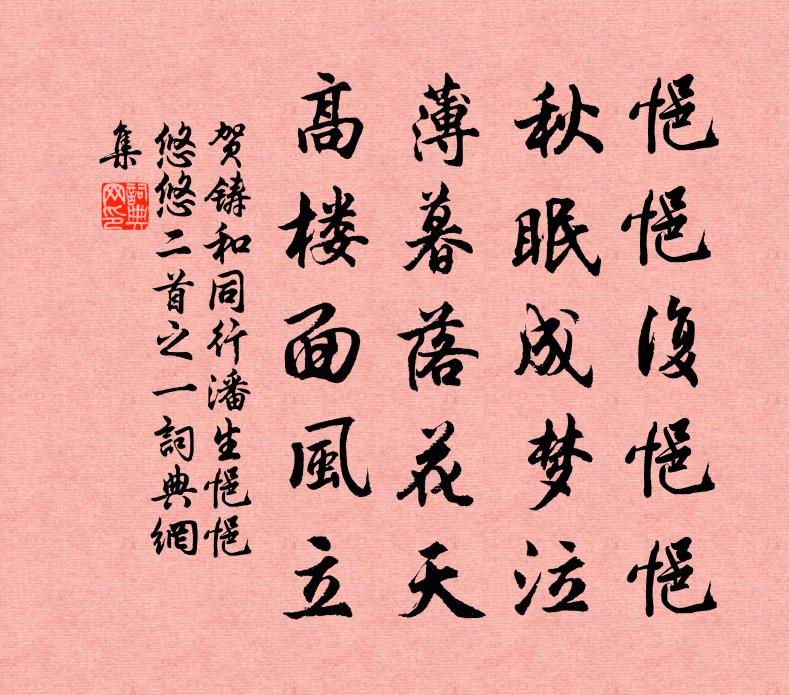 悒悒復悒悒
秋眠成梦泣
薄暮落花天
高楼面風立
贺鑄和同行潘生悒悒
悠悠二首之一詞典網
集
詞典
网印